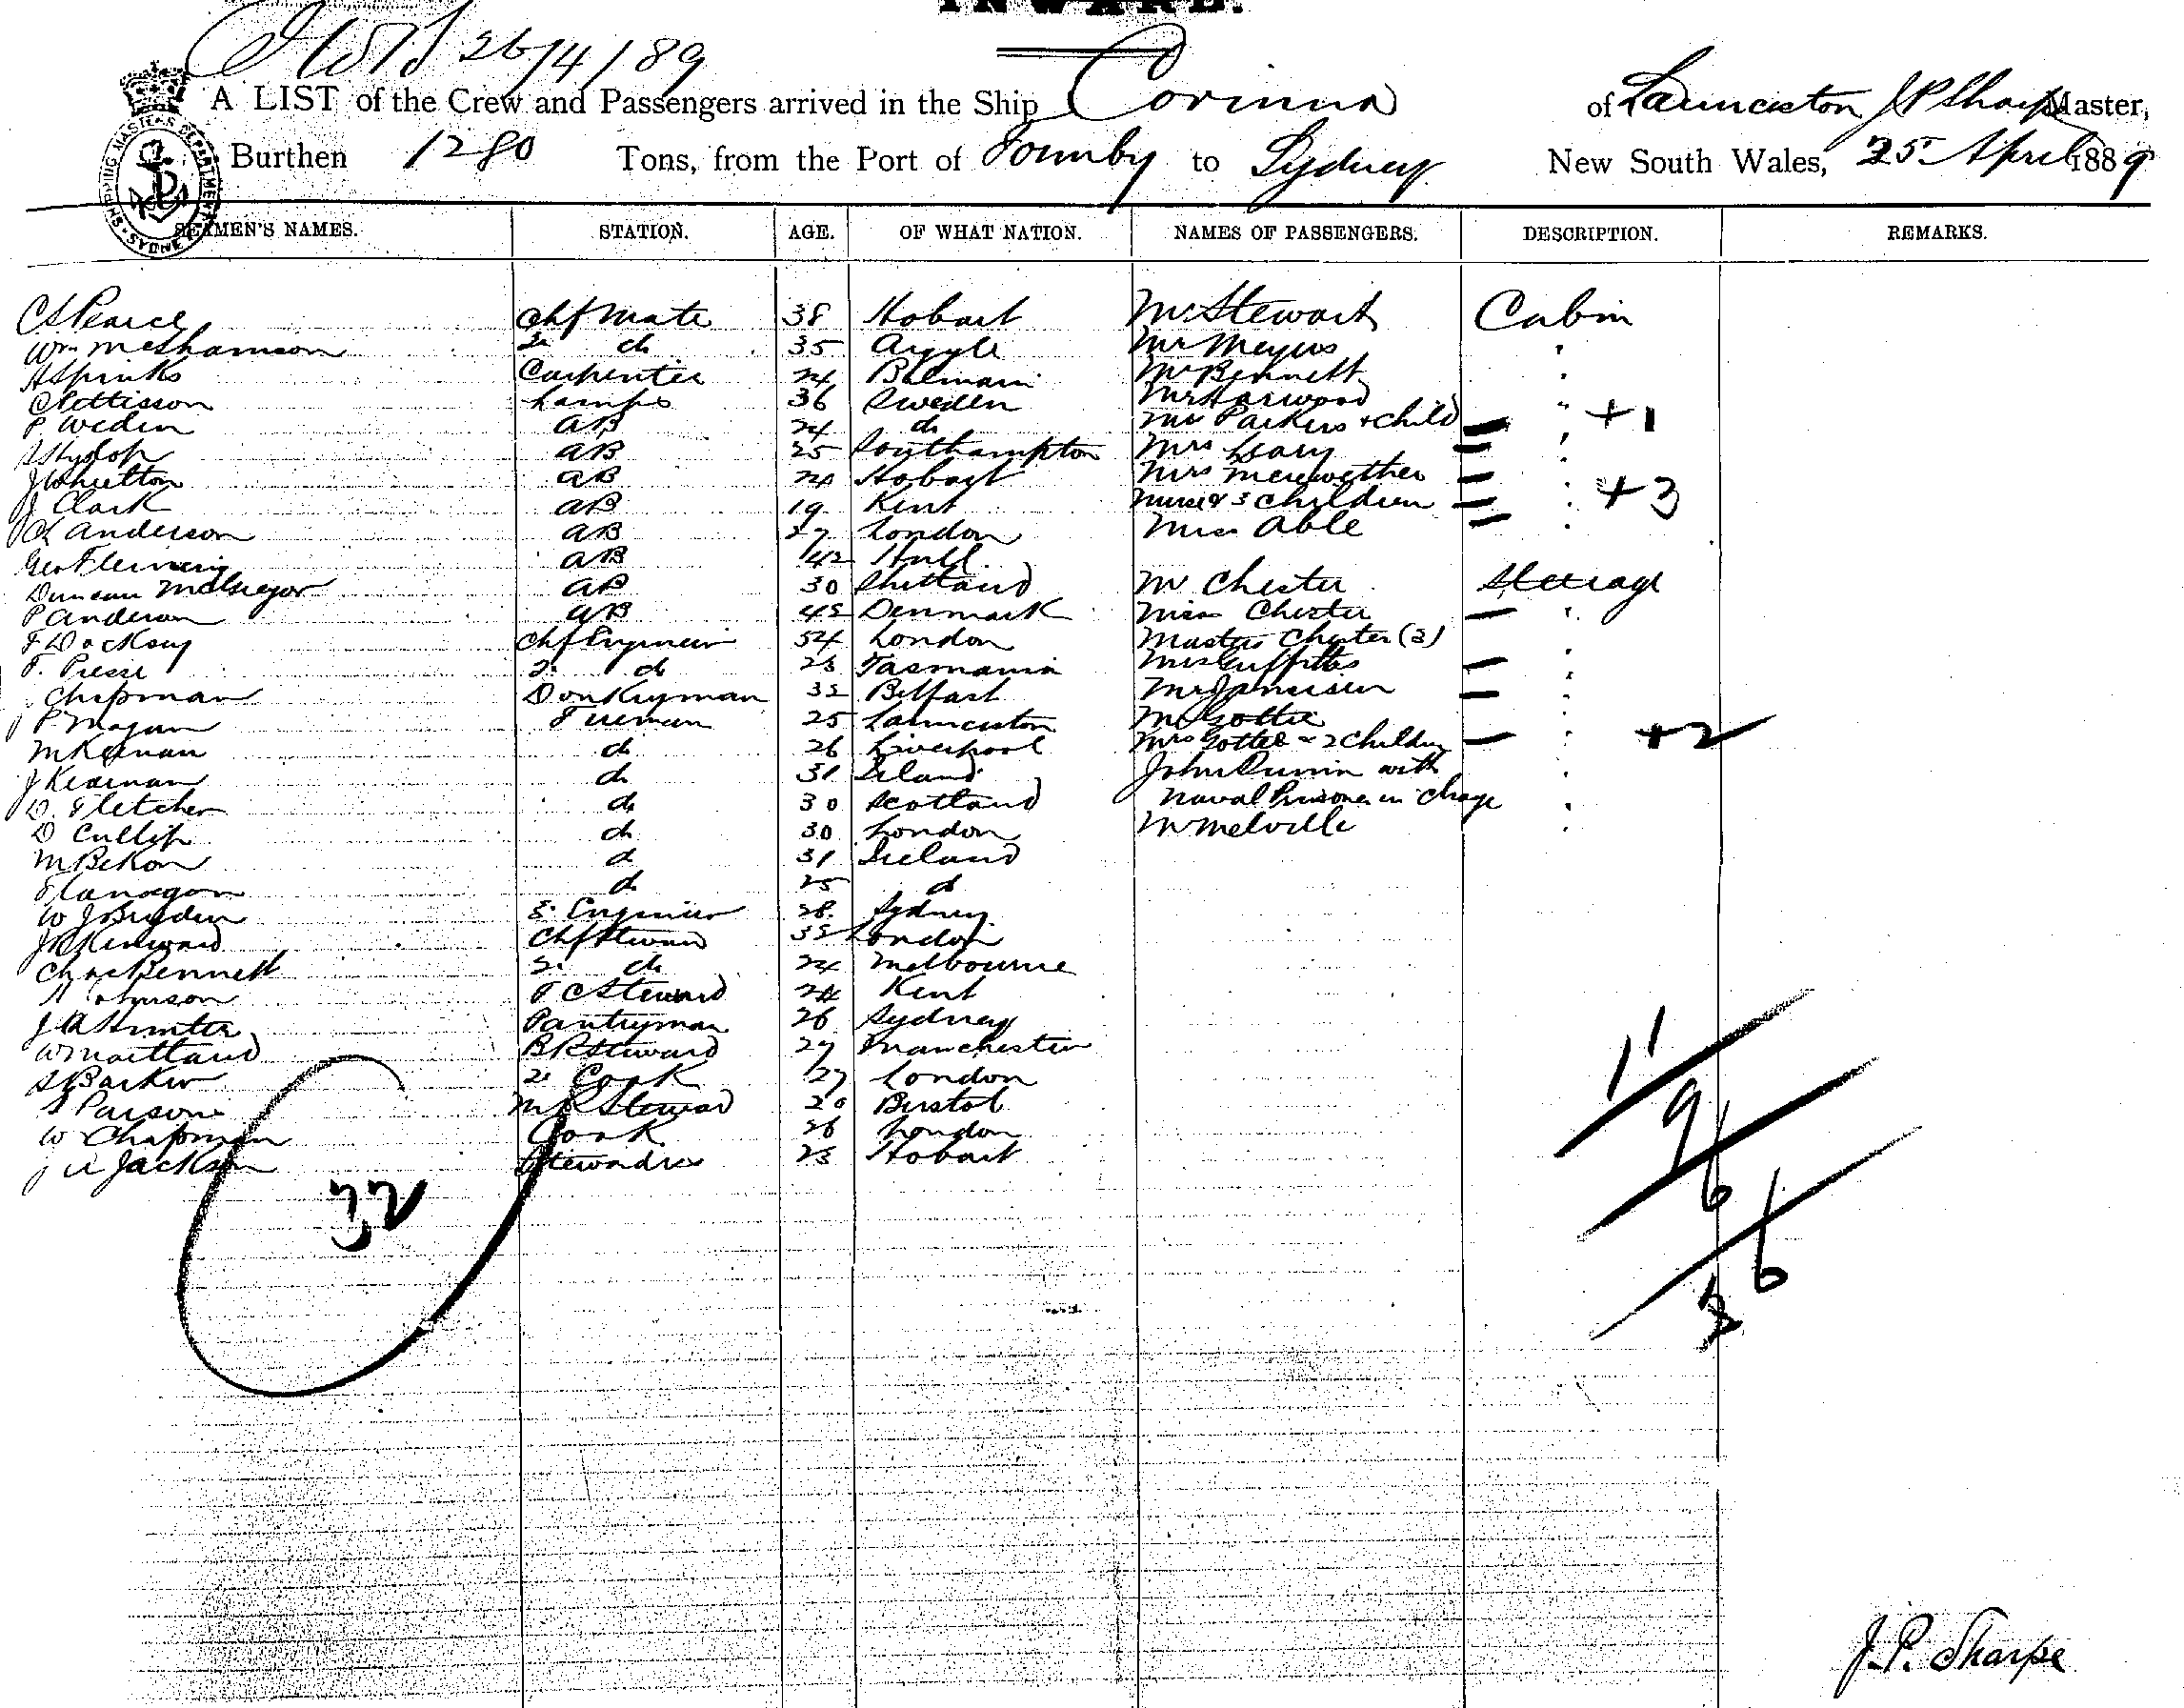 INWARD.
26/4/89
A LIST of the Crew and Passengers arrived in the Ship Corinna of Launceston J P Sharpe Master,
Burthen 1280 Tons, from the Port of to Sydney New South Wales, 25 April 1889
SHIPPING MASTER'S DEPARTMENT SYDNEY
SEAMEN'S NAMES. STATION. AGE. OF WHAT NATION. NAMES OF PASSENGERS. DESCRIPTION. REMARKS.
C S Pearce Chf Mate 38 Hobart Mr Stewart Cabin
Wm 2 do 35 Argyle Mr Meyers "
H Spinks Carpenter 24 Balmain Mr Bennett "
C Pettisson Lamps 36 Sweden Mr Harwood "
P. Weden AB 24 do Mr Parkers + child " +1
Hyslop AB 25 Southampton Mrs Leary "
J AB Hobart Mrs Merewether "
J Clark AB 19 Kent Nurse & 3 children " +3
Ch Anderson AB 27 London Miss Able "
Geo Fleming AB 42 Hull
Duncan McGregor AB 30 Shetland Mr Chester Steerage
P Anderson AB 45 Denmark Miss Chester "
F Docksey Chf Engineer 54 London Masters Chester (3)
T. 2 do 23 Tasmania Griffiths "
Chapman Donkeyman Belfast Jamieson "
P Magan Fireman 25 Launceston Mr Gottee "
M Keenan do 26 Liverpool Mrs Gottee & 2 Children " +2
J Kearnan do 31 Ireland John Dunin with "
D. Fletcher do 30 Scotland Naval Prisoner in Charge "
D Cullip do 30 London Mr Melville "
M do 31 Ireland
Flanagan do 25 do
W J Bryden 3 Engineer 28 Sydney
J Chf Steward 35 London
Chas Bennett 2 do 24 Melbourne
Johnson F C Steward 24 Kent
J A Hunter Pantryman 26 Sydney
W Maitland B R Steward 27 Manchester
S Barker 2 Cook 27 London
S Parsons M R Steward 20 Bristol
W Chapman Cook 26 London
Jackson Stewardess 23 Hobart
32
11
9
6
6
J. P. Sharpe